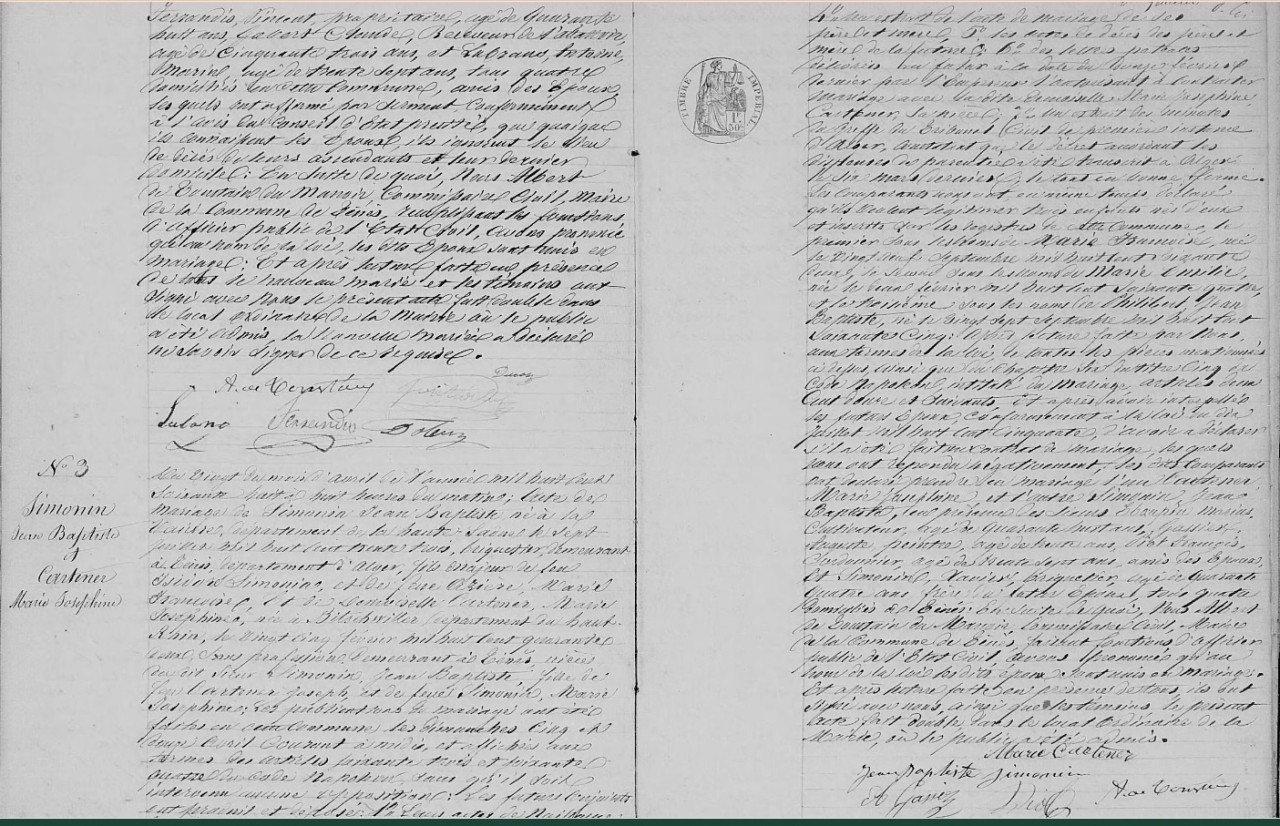 Ferrandis, Vincent, propriétaire, agé de Quarante
huit ans, Calvert Claude, Receveur de l'abattoir,
agé de Cinquante trois ans, et Lubrano, Antoine,
Marin, agé de trente sept ans, tous quatre
domiciliés en cette Commune, amis des Epoux,
les quels ont affirmé par serment Conformément
à l'avis du Conseil d'Etat précité, que quoique
ils connaissent les Epoux, ils ignorent le lieu
de décès de leurs ascendants et leur dernier
domicile: En suite de quoi, Nous Albert
de Toustain du Manoir, Commissaire Civil, Maire
de la Commune de Ténès, remplissant les fonctions
d'officier public de l'Etat Civil, avons prononcé
qu'au nom de la loi, les dits Epoux sont unis en
mariage: Et après lecture faite en présence
de tous le nouveau marié et les témoins ont
signé avec Nous le présent acte fait double dans
le local ordinaire de la Mairie où le public
a été admis, la Nouvelle mariée a déclaré
ne savoir signer de ce requise.
A. de Toustain
Lubrano Ferrandis
N° 3
Simonin
Jean Baptiste
et
Cartener
Marie Josephine
Du Vingt du mois d'avril de l'année mil huit cent
Soixante huit à huit heures du matin: Acte de
mariage de Simonin Jean Baptiste, né à la
département de la haute-Saône le Sept
juillet mil huit cent trente trois, briquetier, demeurant
à Ténès, département d'Alger, fils majeur de feu
Simonin, et de feue Marie
Françoise, Et de Demoiselle Cartener, Marie
Josephine, née à Bitschwiller département du haut-
Rhin, le Vingt Cinq février mil huit cent quarante
deux, sans profession, demeurant à Ténès, nièce
dudit Sieur Simonin, Jean Baptiste, fille de
feu Cartener Joseph, et de feue Simonin, Marie
Josephine; Les publications de mariage ont été
faites en cette Commune les Dimanches Cinq et
Douze Avril Courant à midi, et affichées aux
termes des articles soixante trois et soixante
quatre du Code Napoléon, sans qu'il soit
intervenu aucune opposition: Les futurs Conjoints
ont produit et déposé: 1° Leurs actes de Naissance;
TIMBRE IMPERIAL
1F.
50c
extrait de l'acte de mariage de ses
père et mère, 5° les actes de décès des père et
mère de la future; 6° des lettres patentes
délivrées au futur à la date du onze février
dernier par l'Empereur l'autorisant à Contracter
mariage avec la dite Demoiselle Marie Josephine
Cartener, sa nièce; 7° Un extrait des minutes
du Greffe du Tribunal Civil de première instance
d'Alger, constatant que le décret accordant les
dispenses de parenté a été transcrit à Alger
le Six mars dernier, le tout en bonne forme.
Les Comparants nous ont en même temps déclaré
qu'ils veulent légitimer trois enfants nés d'eux
et inscrits sur les registres de cette Commune, le
premier sous les noms de Marie Françoise, née
le Vingt neuf Septembre mil huit cent soixante
deux, le second sous les noms de Marie Emilie,
née le deux février mil huit cent soixante quatre,
et le troisième sous les noms de Philibert, Jean
Baptiste, né le Vingt sept Septembre mil huit cent
Soixante Cinq: Après lecture faite par Nous,
aux termes de la loi, de toutes les pièces mentionnées
ci-dessus, ainsi que du Chapitre Six du titre Cinq du
Code Napoléon intitulé du Mariage articles deux
Cent douze et suivants, et après avoir interpellé
les futurs Epoux, conformément à la loi du dix
juillet mil huit cent cinquante, d'avoir à déclarer
s'il a été fait un contrat de mariage, les quels
nous ont répondu négativement, les dits Comparants
ont déclaré prendre en mariage l'un Cartener,
Marie Josephine et l'autre Simonin, Jean
Baptiste, en présence des Sieurs Marius,
Cultivateur, agé de Quarante huit ans,
Auguste peintre, agé de trente ans, Viol François,
Cordonnier, agé de trente sept ans, amis des Epoux,
Et Simonin, Xavier, briquetier agé de Quarante
Quatre ans frère du futur Epoux, tous quatre
domiciliés à Ténès: En suite de quoi, Nous Albert
de Toustain du Manoir, Commissaire Civil, Maire
de la Commune de Ténès, faisant fonctions d'Officier
public de l'Etat Civil, avons prononcé qu'au
nom de la loi les dits époux sont unis en mariage.
Et après lecture faite en présence de tous, ils ont
signé avec nous, ainsi que les témoins, le présent
acte fait double dans le local Ordinaire de la
Mairie, où le public a été admis.
Marie Cartener
Jean Baptiste Simonin
Viol A. de Toustain